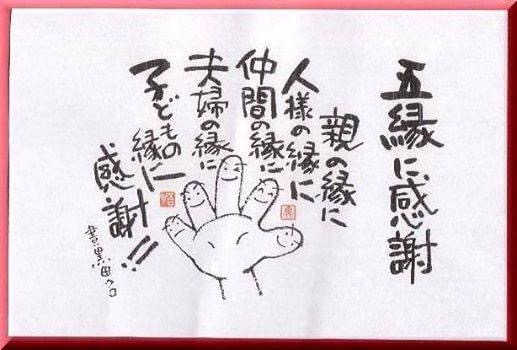 五縁に感謝
親の縁に
人様の縁に
仲間の縁に
夫婦の縁に
子どもの縁に
感謝!!
書黒田クロ